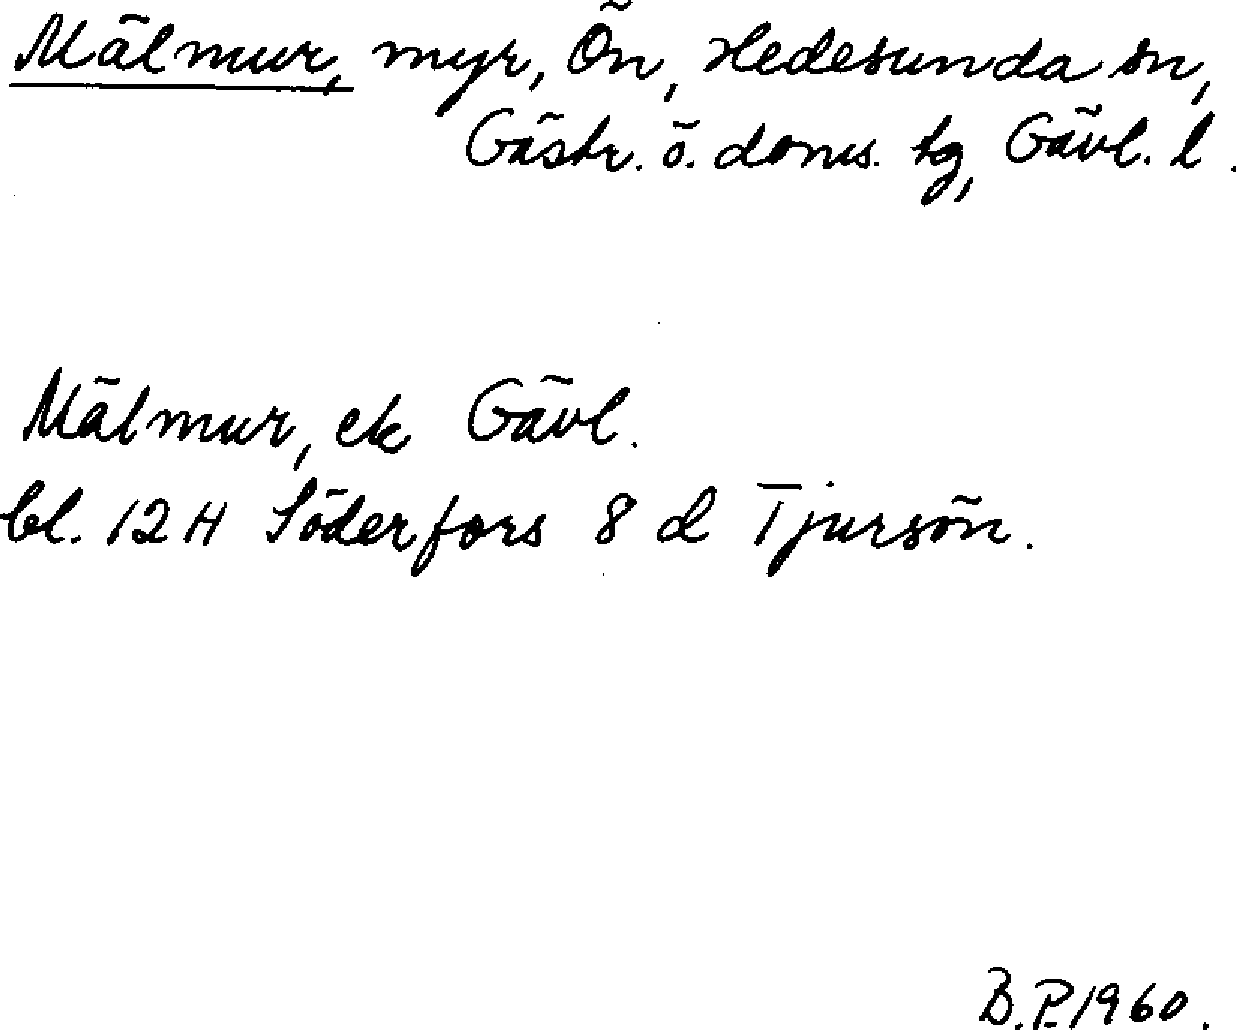 Mälmur, myr, Ön, Hedesunda sn,
Gästr. ö. doms. tg, Gävl. l.
Mälmur, ek Gävl.
bl. 12 H Söderfors 8 d Tjursön.
B.P. 1960.